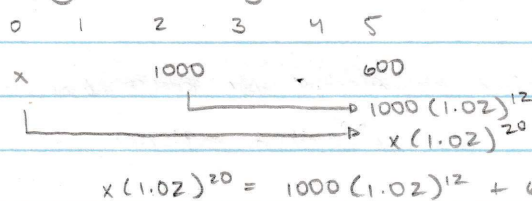 0 1 2 3 4 5
x 1000 600
1000 (1.02)^12
x (1.02)^20
x (1.02)^20 = 1000 (1.02)^12 +